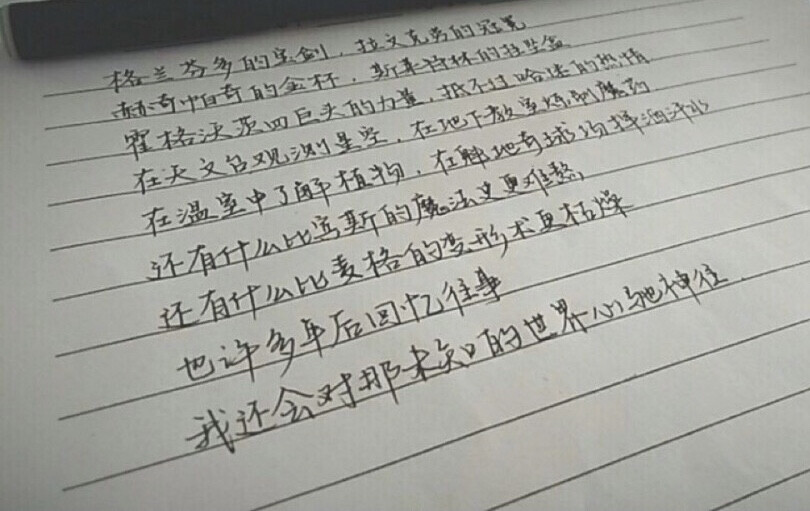 格兰芬多的宝剑，拉文克劳的冠冕
赫奇帕奇的金杯，斯莱特林的挂坠盒
霍格沃茨四巨头的力量，抵不过哈迷的热情
在天文台观测星空，在地下教室熬制魔药
在温室中了解植物，在魁地奇球场挥洒汗水
还有什么比宾斯的魔法史更难熬，
还有什么比麦格的变形术更枯燥
也许多年后回忆往事
我还会对那未知的世界心驰神往